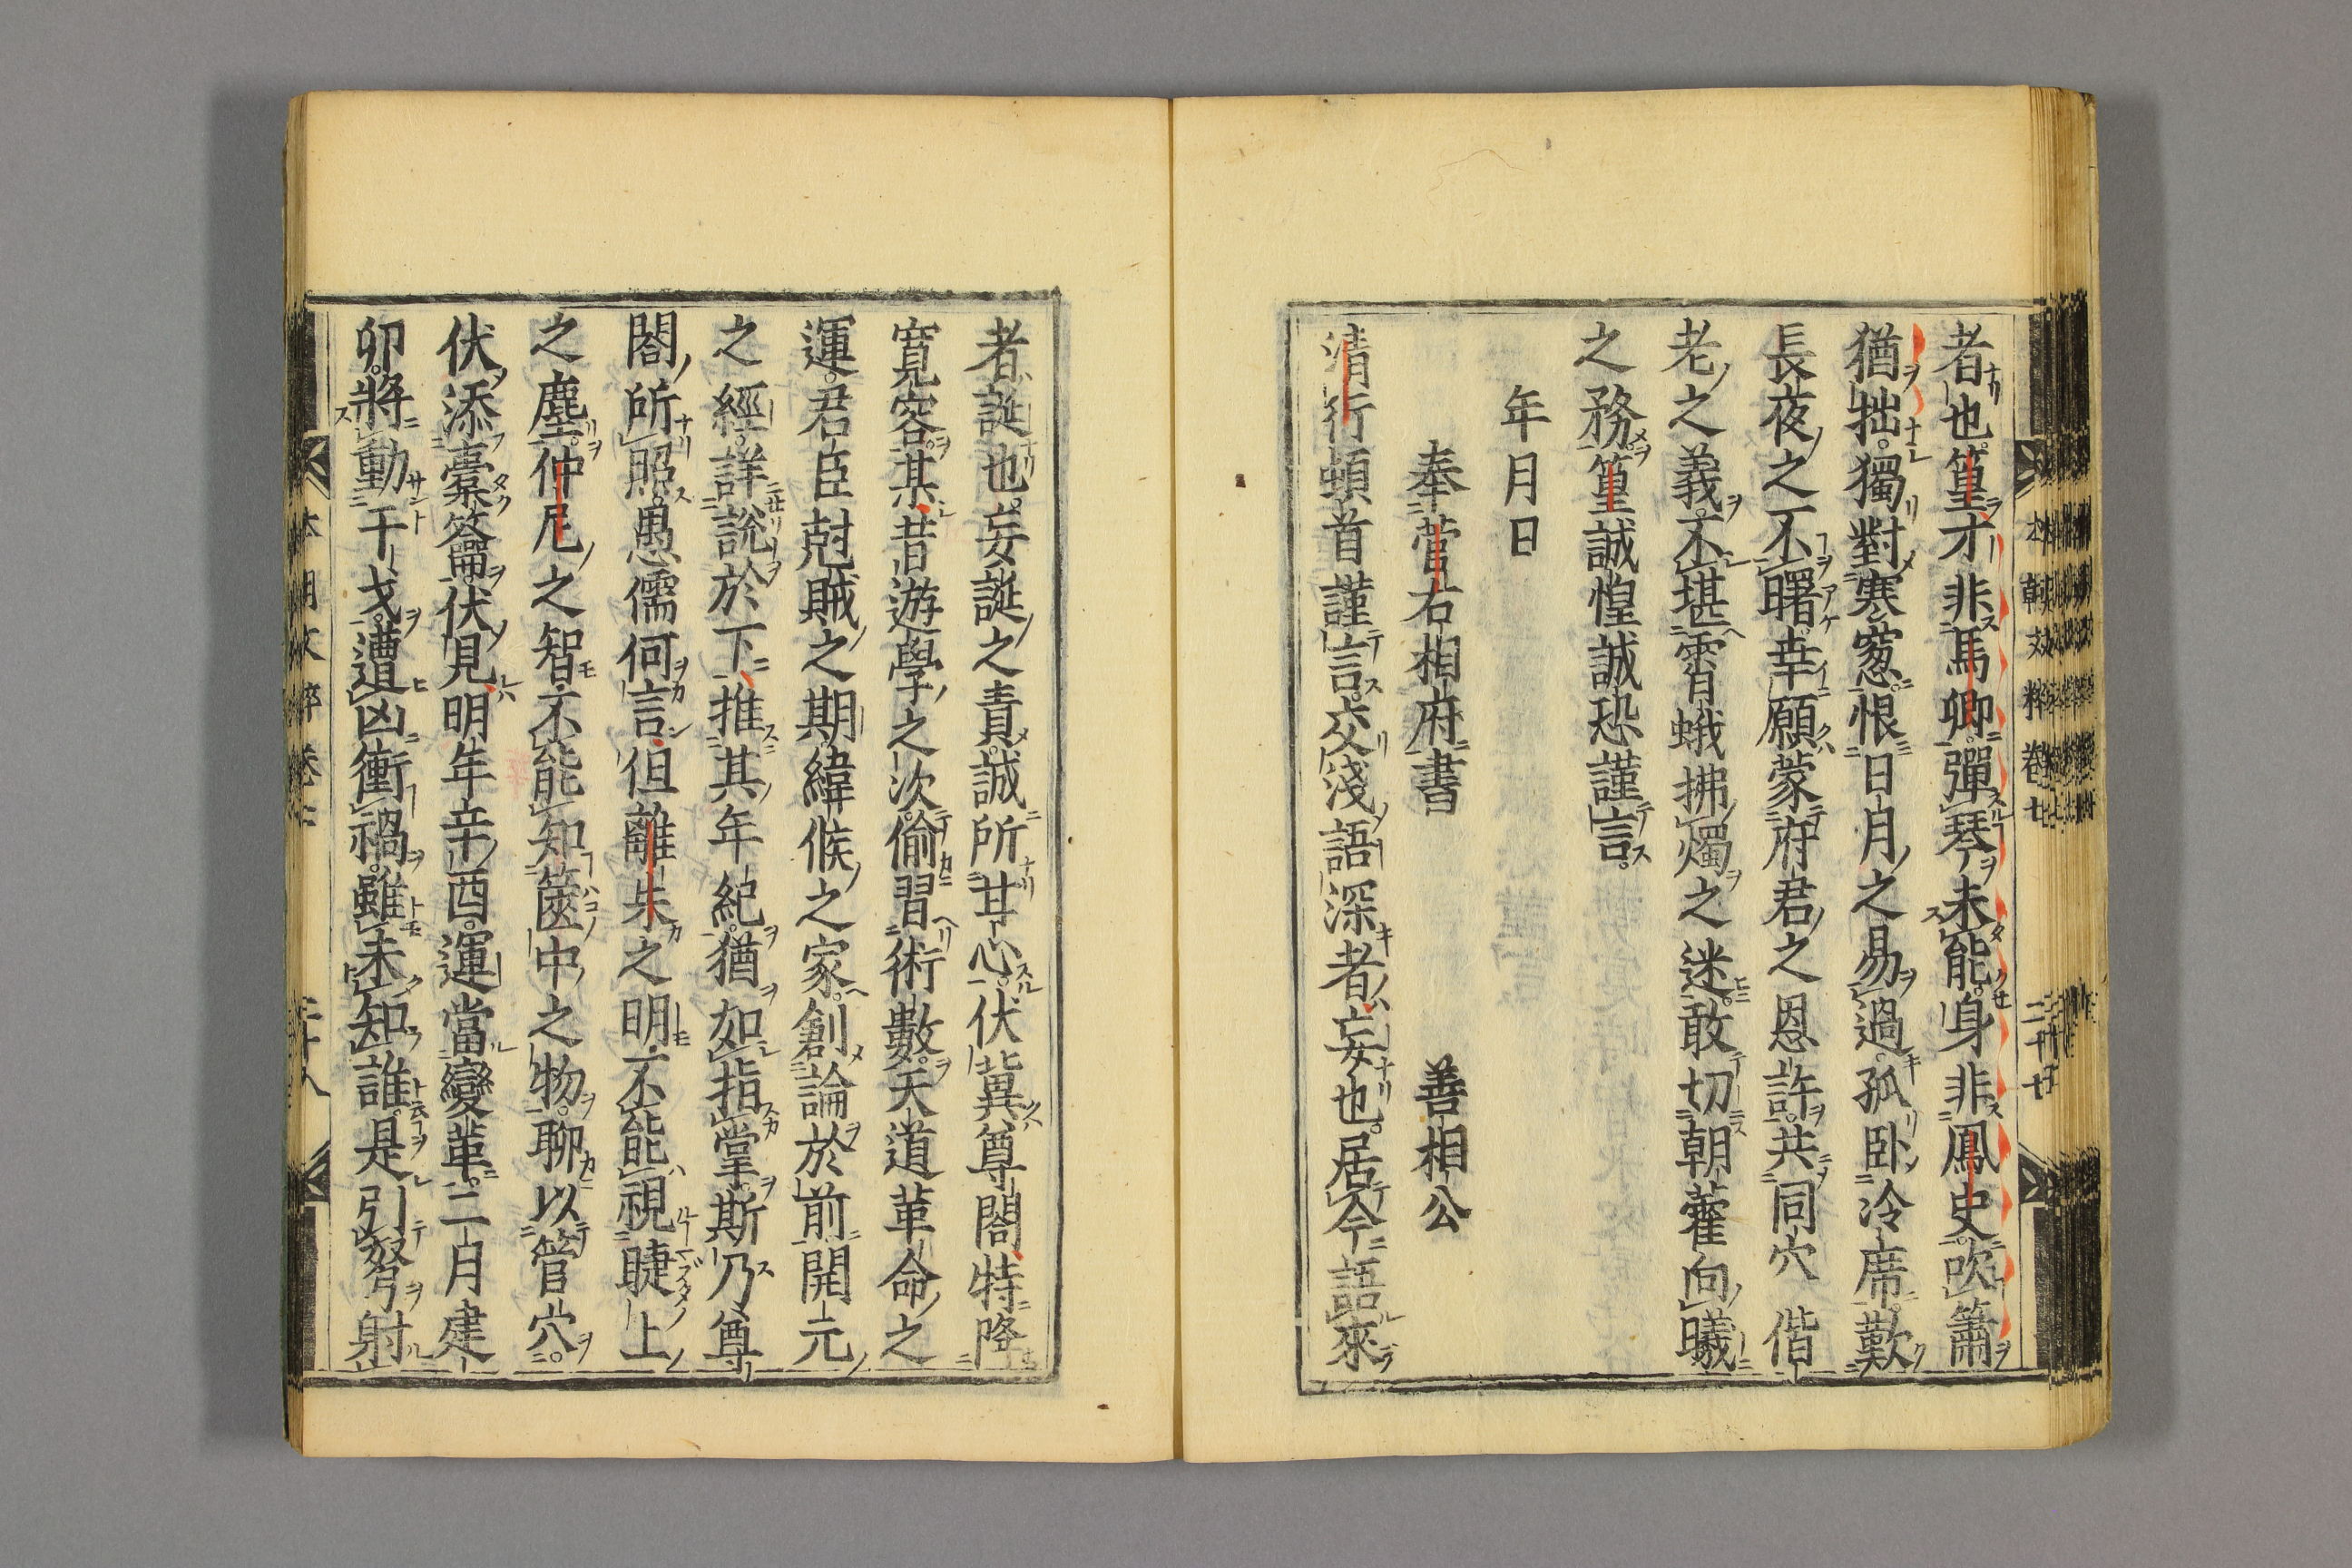 者也。篁才非馬卿。彈琴未能。身非鳳史。吹簫
猶拙。獨對寒窓。恨日月之易過。孤臥冷席。歎
長夜之不曙。幸願蒙府君之恩許。共同穴偕
老之義。不堪宵蛾拂燭之迷。敢切朝藿向曦
之務。篁誠惶誠恐謹言。
年月日
奉菅右相府書 善相公
清行頓首謹言。交淺語深者妄也。居今語來
者誕也。妄誕之責。誠所甘心。伏冀尊閤特降
寬容。某昔遊學之次。偷習術數。天道革命之
運。君臣尅賊之期。緯候之家。創論於前。開元
之經。詳說於下。推其年紀。猶如指掌。斯乃尊
閤所照。愚儒何言。但離朱之明。不能視睫上
之塵。仲尼之智。不能知篋中之物。聊以管穴。
伏添橐籥。伏見明年辛酉。運當變革。二月建
卯。將動干戈。遭凶衝禍。雖未知誰是。引弩射
本朝文粹卷七